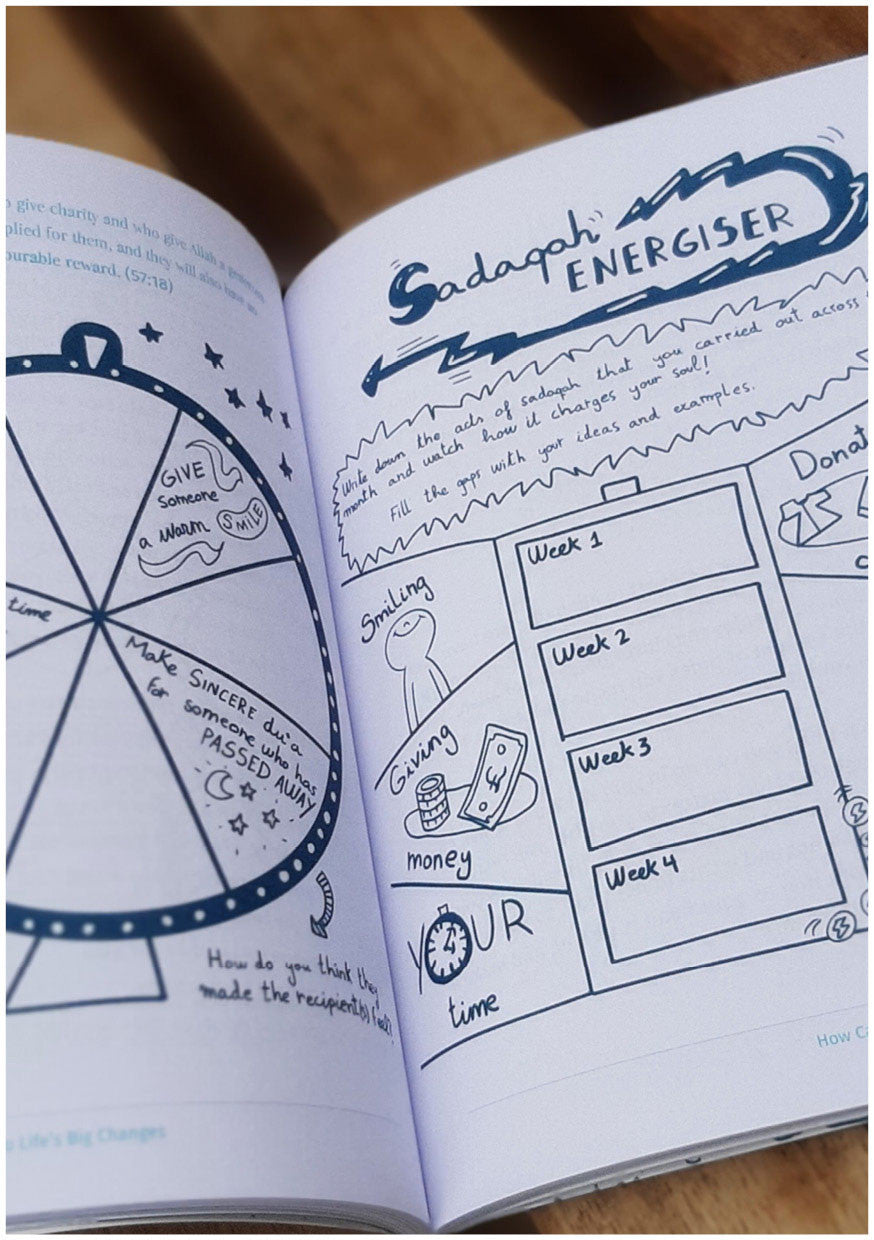 give charity and who give Allah a
plied for them, and they will also have an
ourable reward. (57:18)
GIVE
someone
a warm SMILE
time
Make SINCERE du'a
for someone who has
PASSED AWAY
How do you think they
made the recipient(s) feel?
Life's Big Changes
Sadaqah
ENERGISER
Write down the acts of sadaqah that you carried out across
month and watch how it charges your soul!
Fill the gaps with your ideas and examples.
Smiling
Giving
£
money
YOUR
time
Week 1
Week 2
Week 3
Week 4
Donat
How Ca